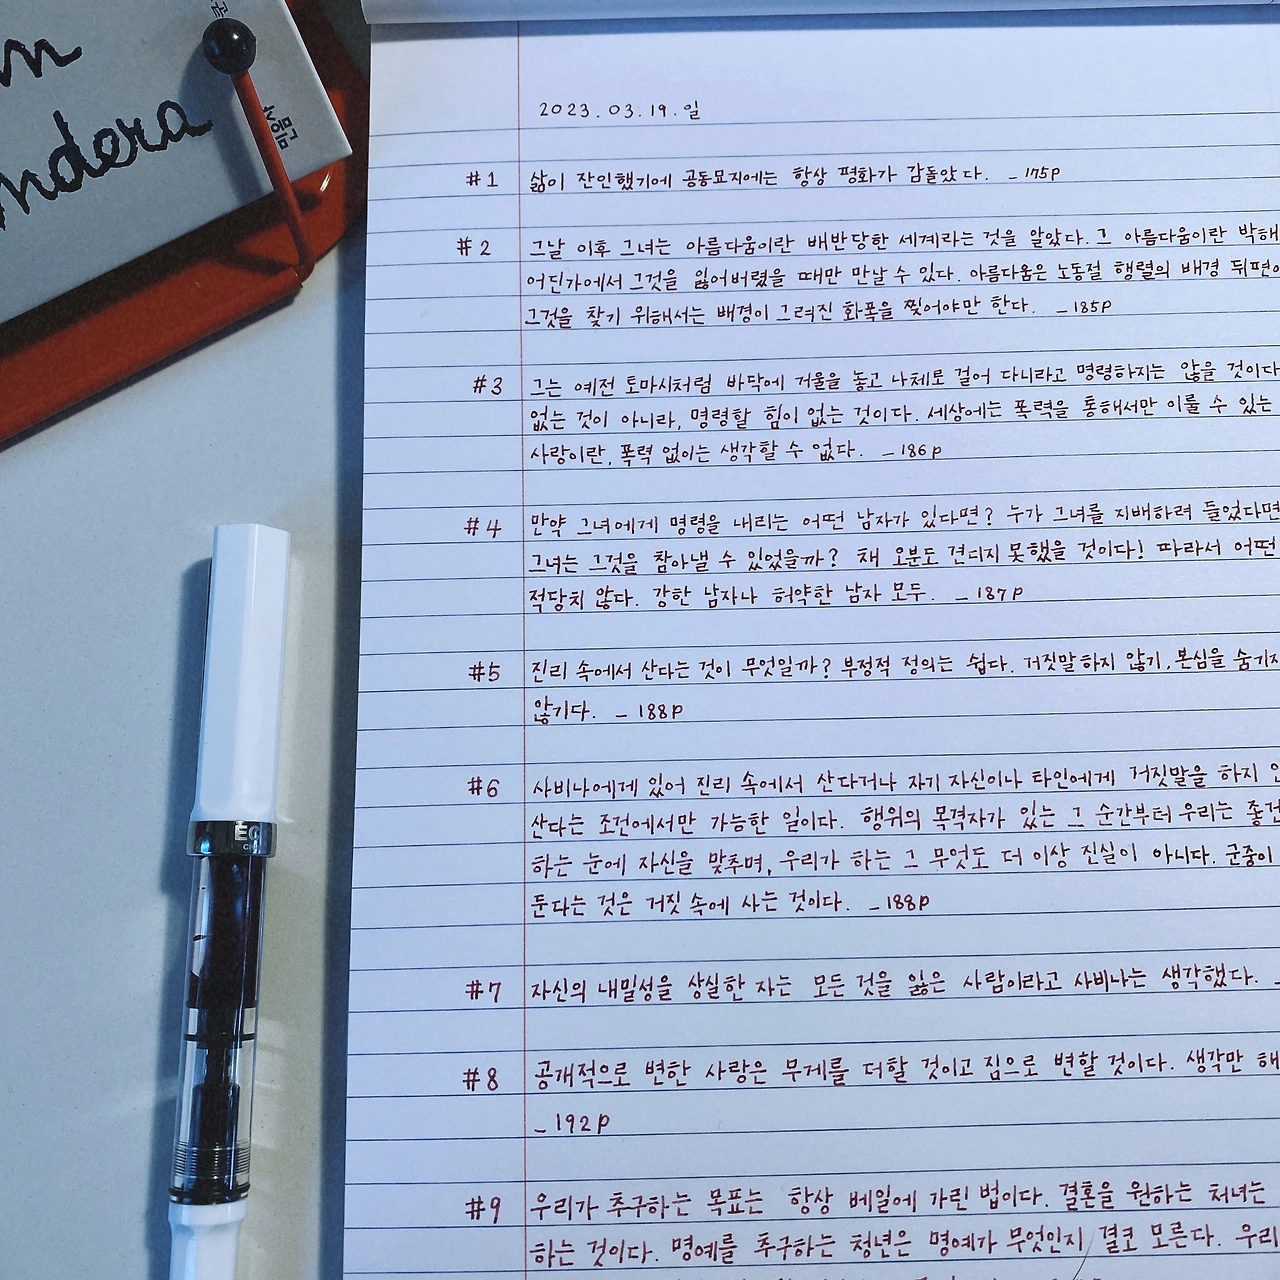 2023. 03. 19. 일
#1 삶이 잔인했기에 공동묘지에는 항상 평화가 감돌았다. _ 175p
#2 그날 이후 그녀는 아름다움이란 배반당한 세계라는 것을 알았다. 그 아름다움이란 박해
어딘가에서 그것을 잃어버렸을 때만 만날 수 있다. 아름다움은 노동절 행렬의 배경 뒤편에
그것을 찾기 위해서는 배경이 그려진 화폭을 찢어야만 한다. _ 185p
#3 그는 예전 토마시처럼 바닥에 거울을 놓고 나체로 걸어 다니라고 명령하지는 않을 것이다
없는 것이 아니라, 명령할 힘이 없는 것이다. 세상에는 폭력을 통해서만 이룰 수 있는
사랑이란, 폭력 없이는 생각할 수 없다. _ 186p
#4 만약 그녀에게 명령을 내리는 어떤 남자가 있다면? 누가 그녀를 지배하려 들었다면
그녀는 그것을 참아낼 수 있었을까? 채 오분도 견디지 못했을 것이다! 따라서 어떤
적당치 않다. 강한 남자나 허약한 남자 모두. _ 187p
#5 진리 속에서 산다는 것이 무엇일까? 부정적 정의는 쉽다. 거짓말하지 않기, 본심을 숨기지
않기다. _ 188p
#6 사비나에게 있어 진리 속에서 산다거나 자기 자신이나 타인에게 거짓말을 하지 않
산다는 조건에서만 가능한 일이다. 행위의 목격자가 있는 그 순간부터 우리는 좋건
하는 눈에 자신을 맞추며, 우리가 하는 그 무엇도 더 이상 진실이 아니다. 군중이
둔다는 것은 거짓 속에 사는 것이다. _ 188p
#7 자신의 내밀성을 상실한 자는 모든 것을 잃은 사람이라고 사비나는 생각했다. _
#8 공개적으로 변한 사랑은 무게를 더할 것이고 짐으로 변할 것이다. 생각만 해
_ 192p
#9 우리가 추구하는 목표는 항상 베일에 가린 법이다. 결혼을 원하는 처녀는
하는 것이다. 명예를 추구하는 청년은 명예가 무엇인지 결코 모른다. 우리
ndera